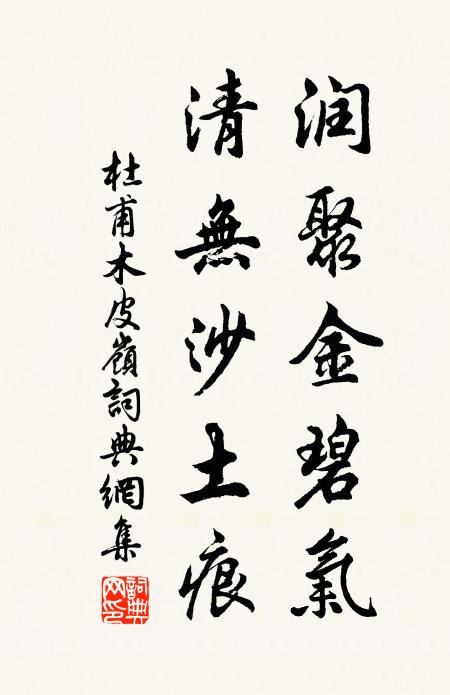 润聚金碧氣
清無沙土痕
杜甫木皮嶺詞典網集
詞典
网印